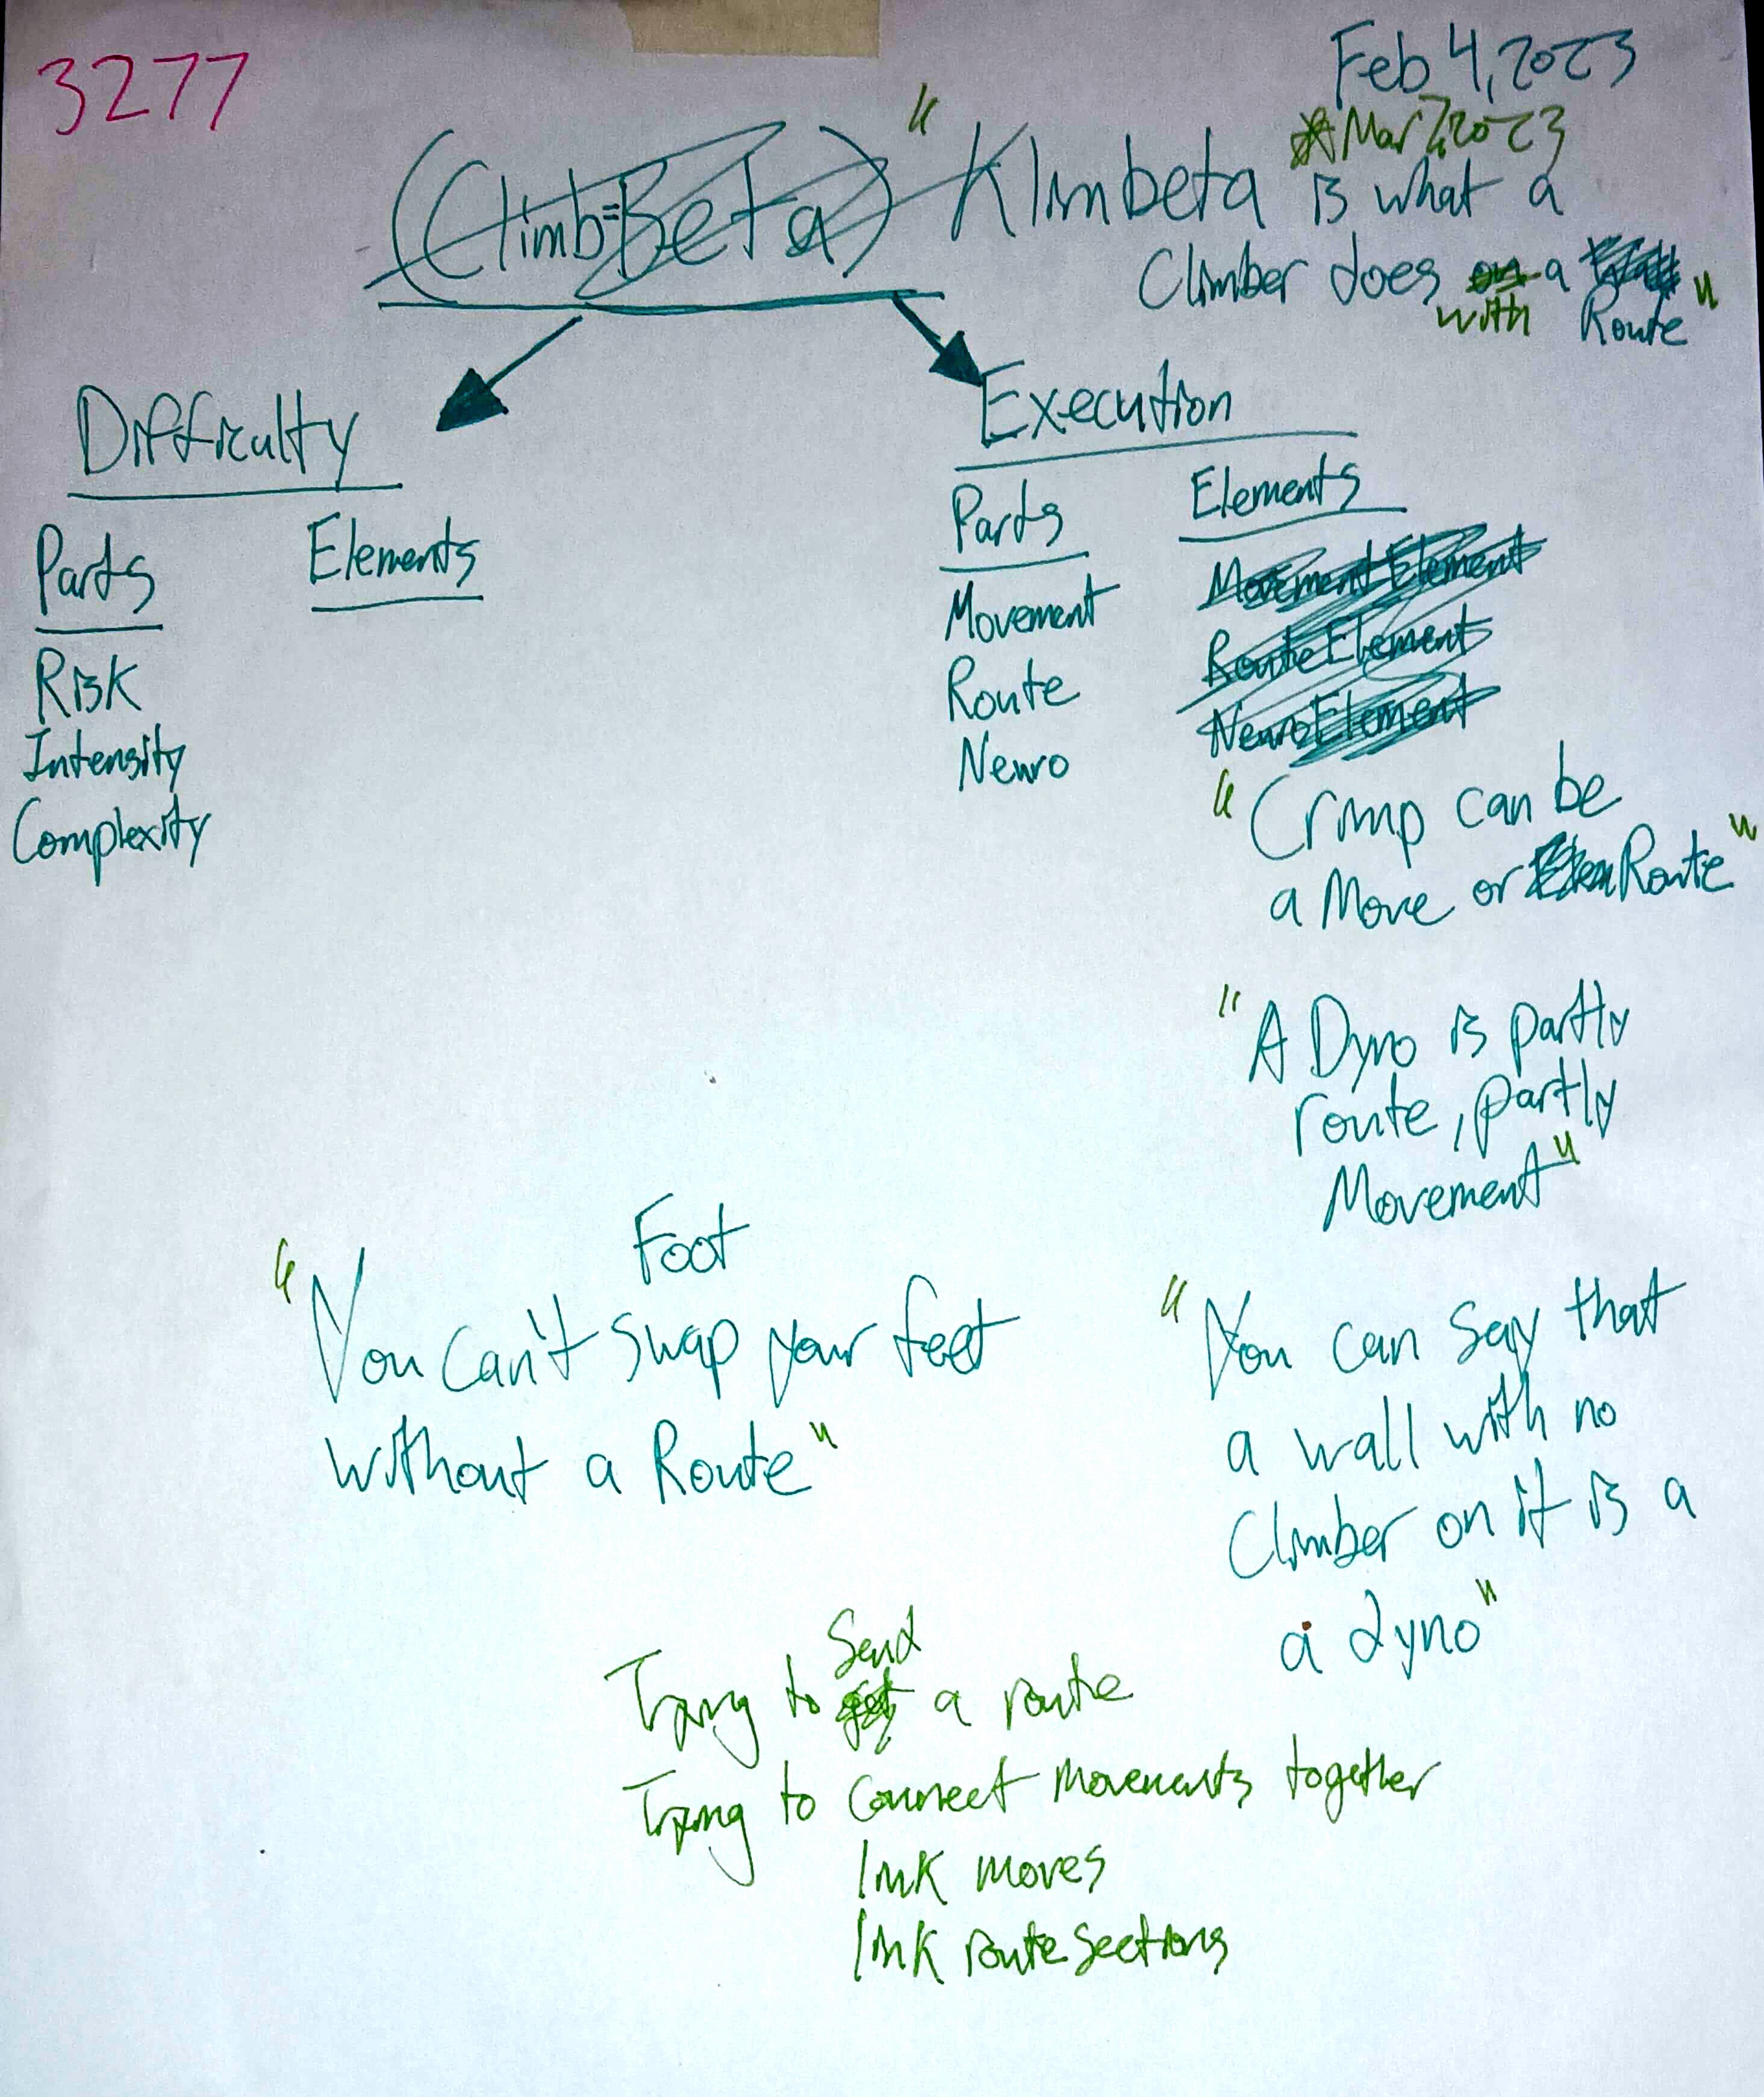 3277
Feb 4, 2023
Mar 7, 2023
(Climb=Beta) "Klimbeta is what a
Climber does on a
with Route"
Difficulty
Execution
Parts Elements
Parts Elements
Risk
Intensity
Complexity
Movement Movement Element
Route Route Element
Neuro Neuro Element
"Crimp can be
a Move or Route"
"A Dyno is partly
route, partly
Movement"
Foot
"You can't swap your feet
without a Route"
"You can say that
a wall with no
Climber on it is a
a dyno"
Send
Trying to get a route
Trying to connect movements together
link moves
link route sections